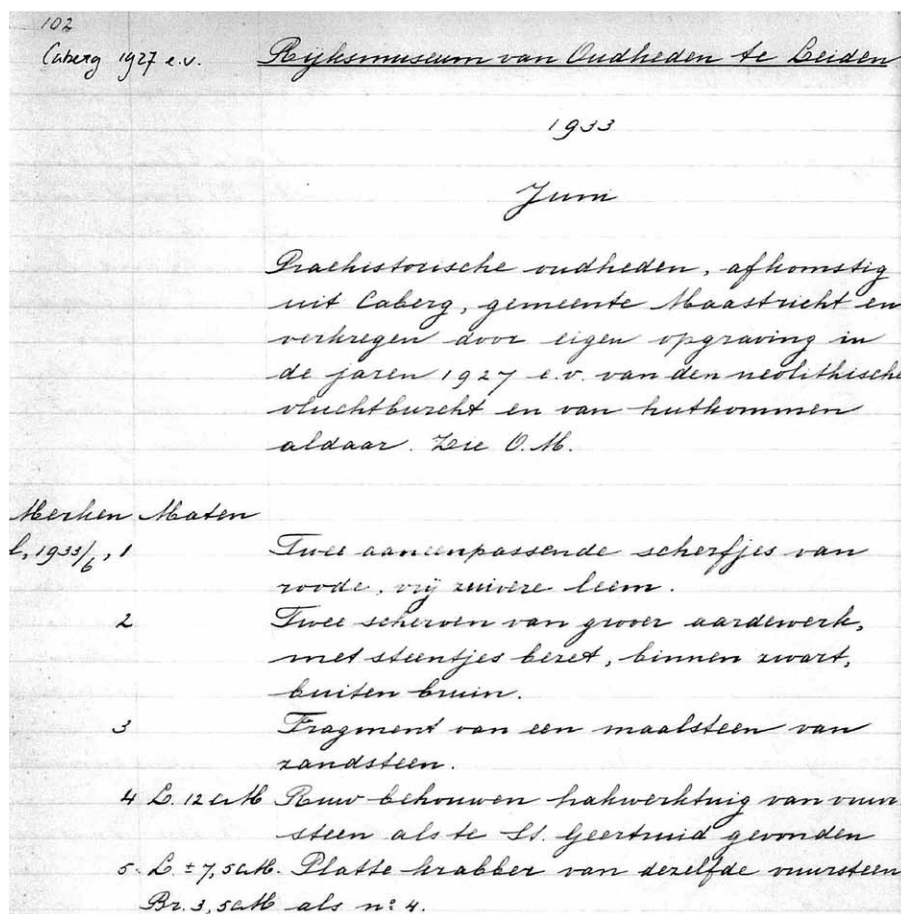 102
Caberg 1927 e.v. Rijksmuseum van Oudheden te Leiden
1933
Juni
Praehistorische oudheden, afkomstig
uit Caberg, gemeente Maastricht en
verkregen door eigen opgraving in
de jaren 1927 e.v. van den neolithische
vluchtburcht en van hutkommen
aldaar. Zie O.M.
Merken Maten
l, 1933/6, 1 Twee aaneenpassende scherfjes van
roode, vrij zuivere leem.
2 Twee scherven van grover aardewerk,
met steentjes bezet, binnen zwart,
buiten bruin.
3 Fragment van een maalsteen van
zandsteen.
4 L. 12 cM Ruw behouwen hakwerktuig van vuur
steen als te St. Geertruid gevonden
5. L. ± 7,5 cM. Platte krabber van dezelfde vuursteen
Br. 3,5 cM als nº 4.